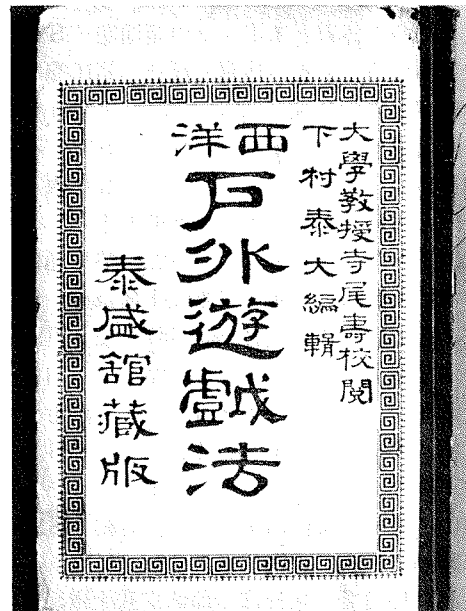 大學教授寺尾壽校閱
下村泰大編輯
西洋
戶外遊戲法
泰盛館藏版